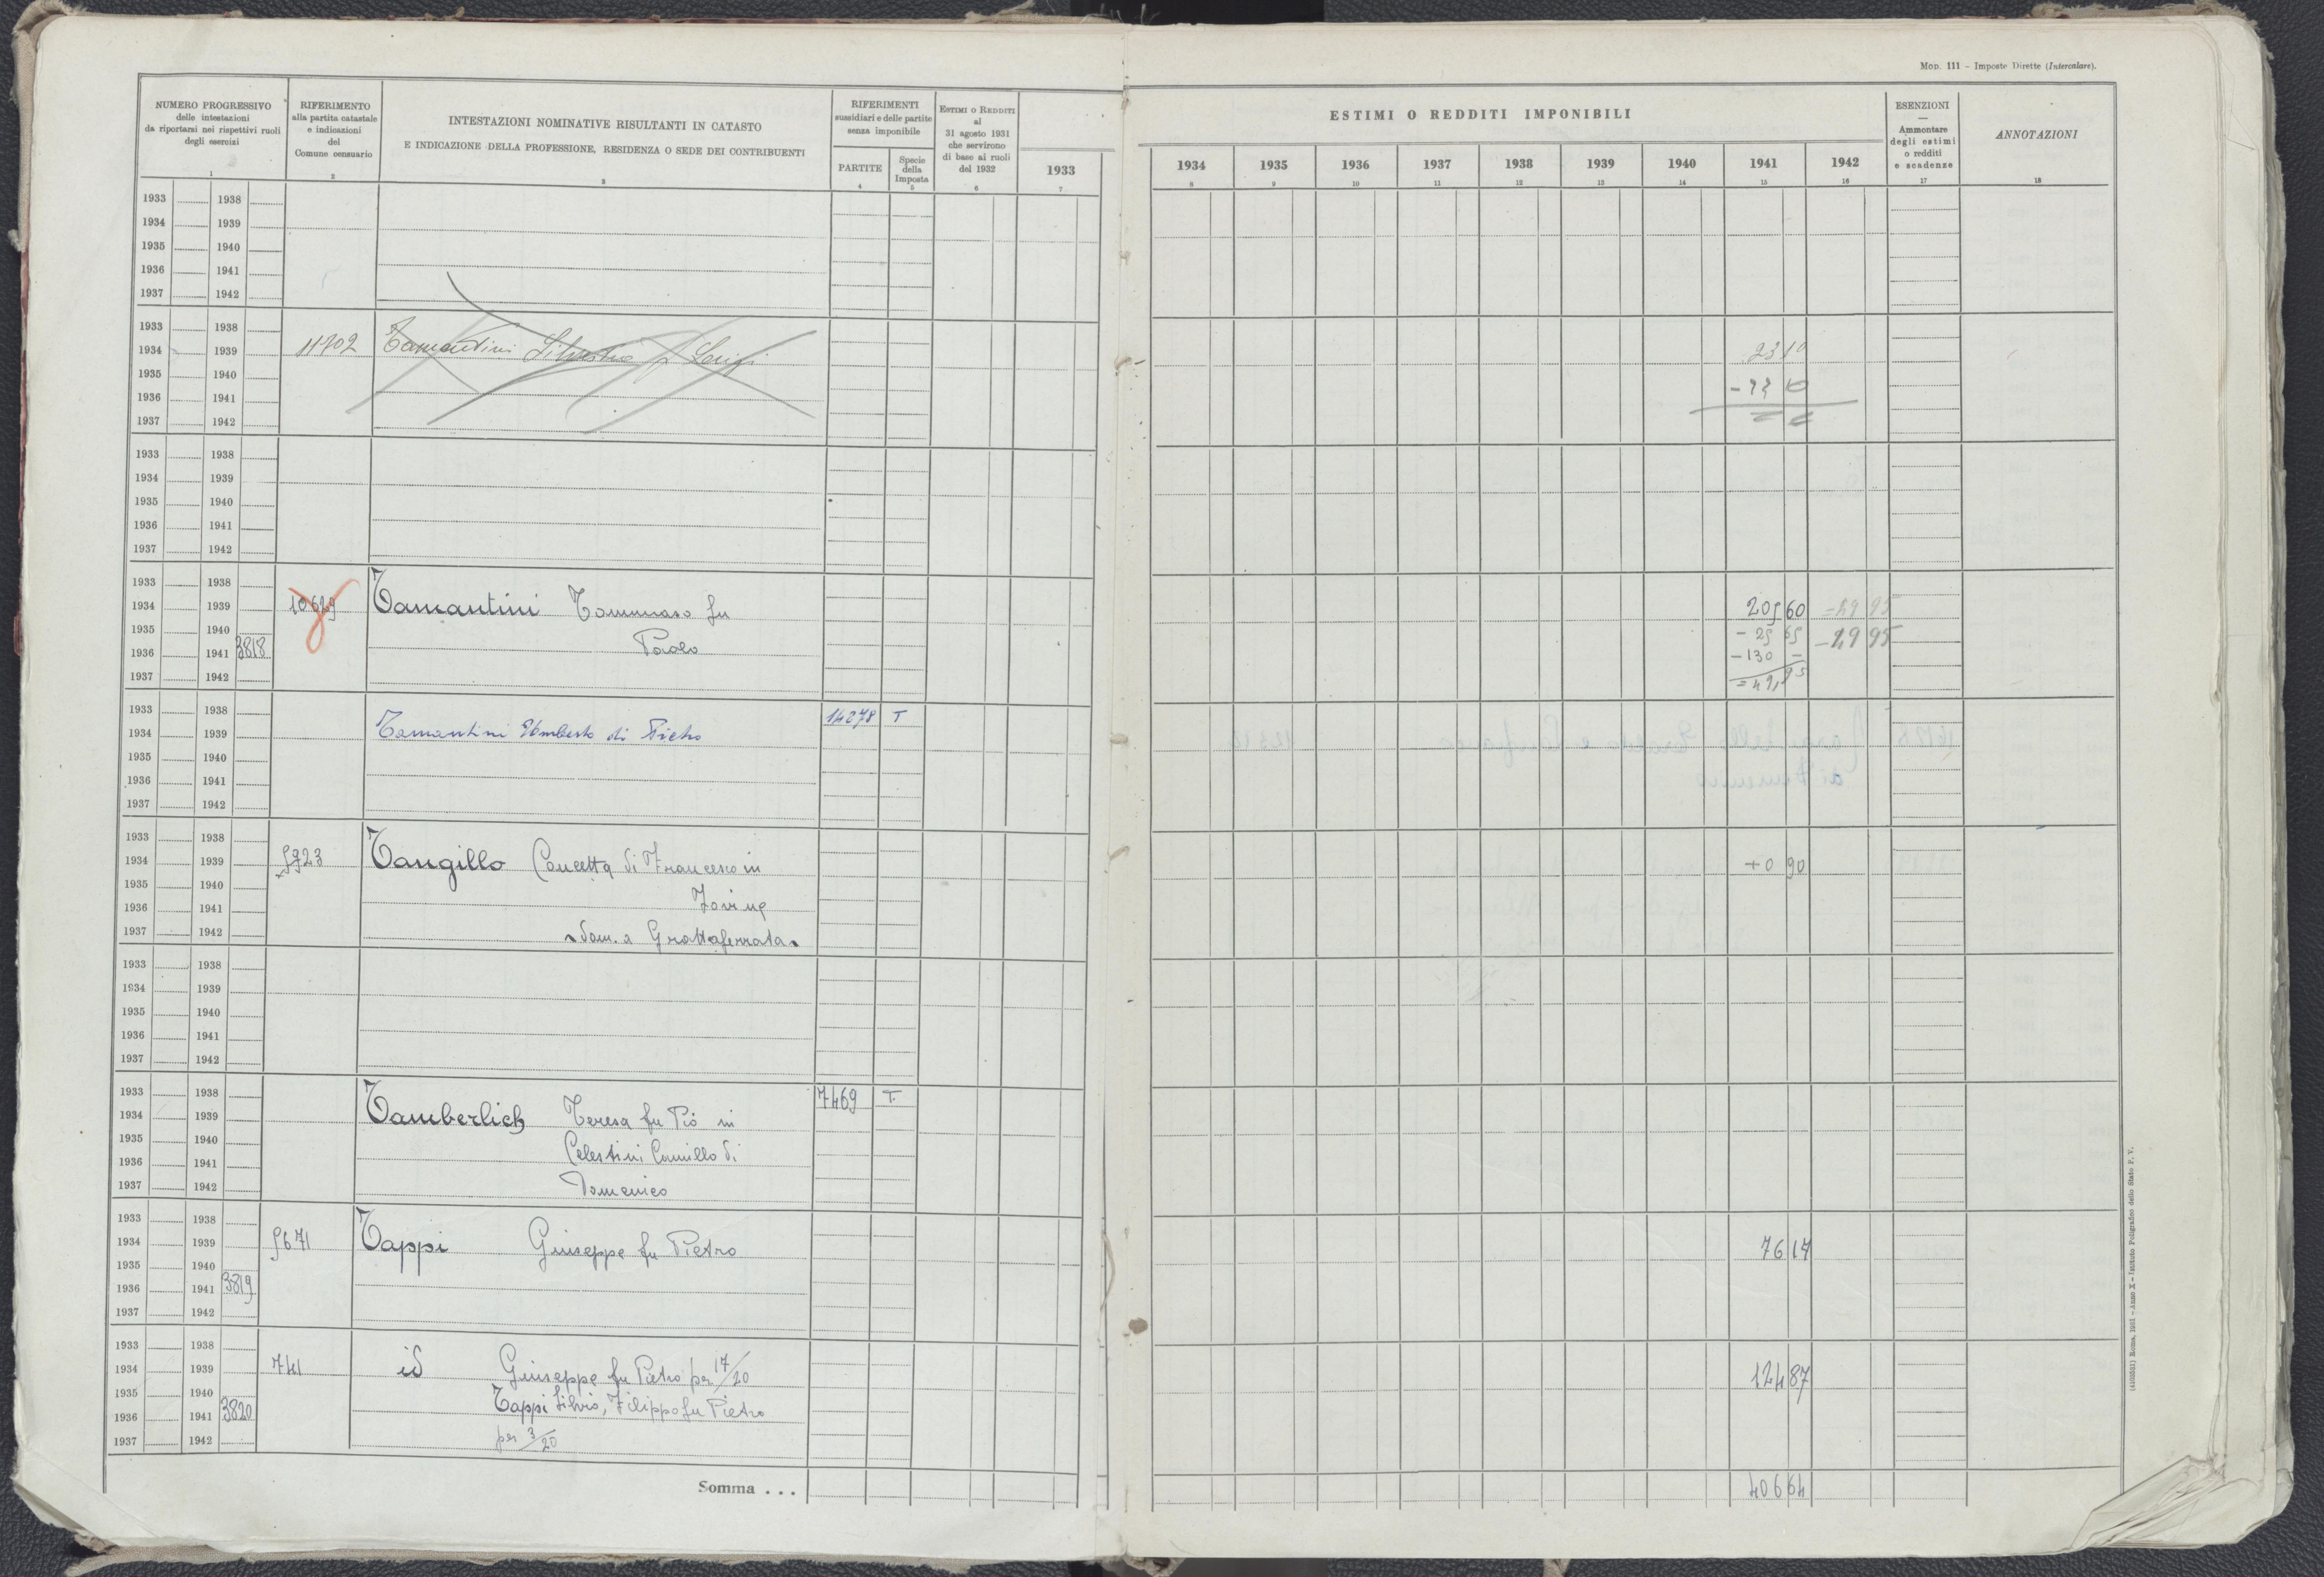 Mod. 111 – Imposte Dirette (Intercalare).
NUMERO PROGRESSIVO
delle intestazioni
da riportarsi nei rispettivi ruoli
degli esercizi
1
RIFERIMENTO
alla partita catastale
e indicazioni
del
Comune censuario
2
INTESTAZIONI NOMINATIVE RISULTANTI IN CATASTO
E INDICAZIONE DELLA PROFESSIONE, RESIDENZA O SEDE DEI CONTRIBUENTI
3
RIFERIMENTI
sussidiari e delle partite
senza imponibile
PARTITE
4
Specie
della
Imposta
5
Estimi o Redditi
al
31 agosto 1931
che servirono
di base ai ruoli
del 1932
6
1933
7
ESTIMI O REDDITI IMPONIBILI
1934 1935 1936 1937 1938 1939 1940 1941 1942
8 9 10 11 12 13 14 15 16
ESENZIONI
—
Ammontare
degli estimi
o redditi
e scadenze
17
ANNOTAZIONI
18
1933 1938
1934 1939
1935 1940
1936 1941
1937 1942
1933 1938
1934 1939 11702 Tamantini Silvestro fu Luigi 23 10
1935 1940
1936 1941
1937 1942
1933 1938
1934 1939
1935 1940
1936 1941
1937 1942
1933 1938
1934 1939 10629 Tamantini Tommaso fu 205 60 = 29 95
1935 1940 Paolo - 25 65 - 29 95
1936 1941 3818 - 130 -
1937 1942
1933 1938 14278 T
1934 1939 Tamantini Umberto di Pietro
1935 1940
1936 1941
1937 1942
1933 1938
1934 1939 5923 Tangillo Concetta di Francesco in + 0 90
1935 1940
1936 1941 Iovine
1937 1942 dom. a Grottaferrata
1933 1938
1934 1939
1935 1940
1936 1941
1937 1942
1933 1938 7469 T
1934 1939 Tamberlich Teresa fu Pio in
1935 1940
1936 1941 Celestini Camillo di
1937 1942 Domenico
1933 1938
1934 1939 5671 Tappi Giuseppe fu Pietro 76 17
1935 1940
1936 1941 3819
1937 1942
1933 1938
1934 1939 741 id Giuseppe fu Pietro per 17/20 124 87
1935 1940
1936 1941 3820 Tappi Silvio, Filippo fu Pietro
1937 1942 per 3/20
Somma . . . 406 64
Roma, 1931 – Anno X – Istituto Poligrafico dello Stato P. V.